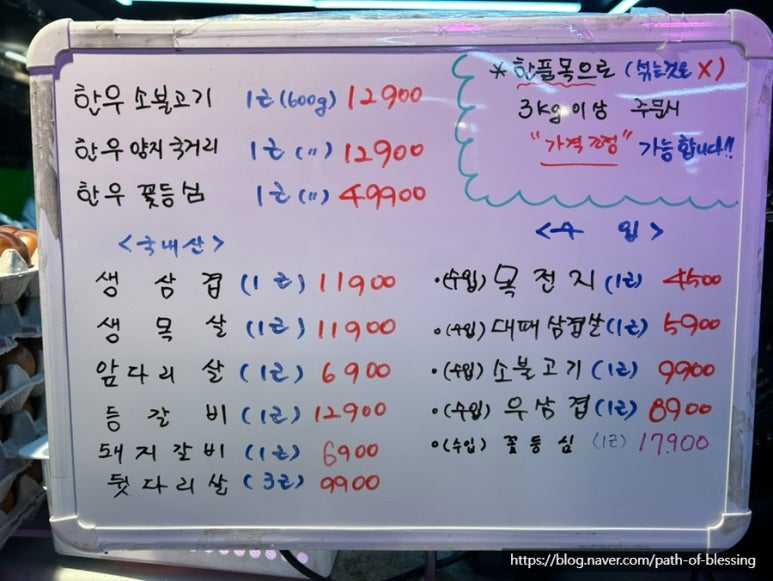 한우 소불고기 1근(600g) 12900
한우 양지 국거리 1근(〃) 12900
한우 꽃등심 1근(〃) 49900
* 한품목으로 (섞는것은 X)
3kg 이상 주문시
"가격 조정" 가능합니다!!
<국내산>
생 삼 겹 (1근) 11900
생 목 살 (1근) 11900
앞다리 살 (1근) 6900
등 갈 비 (1근) 12900
돼지갈비 (1근) 6900
뒷다리살 (3근) 9900
<수 입>
•(수입) 목전지 (1근) 4500
•(수입) 대패삼겹살 (1근) 5900
•(수입) 소불고기 (1근) 9900
•(수입) 우삼겹 (1근) 8900
•(수입) 꽃등심 (1근) 17,900
https://blog.naver.com/path-of-blessing